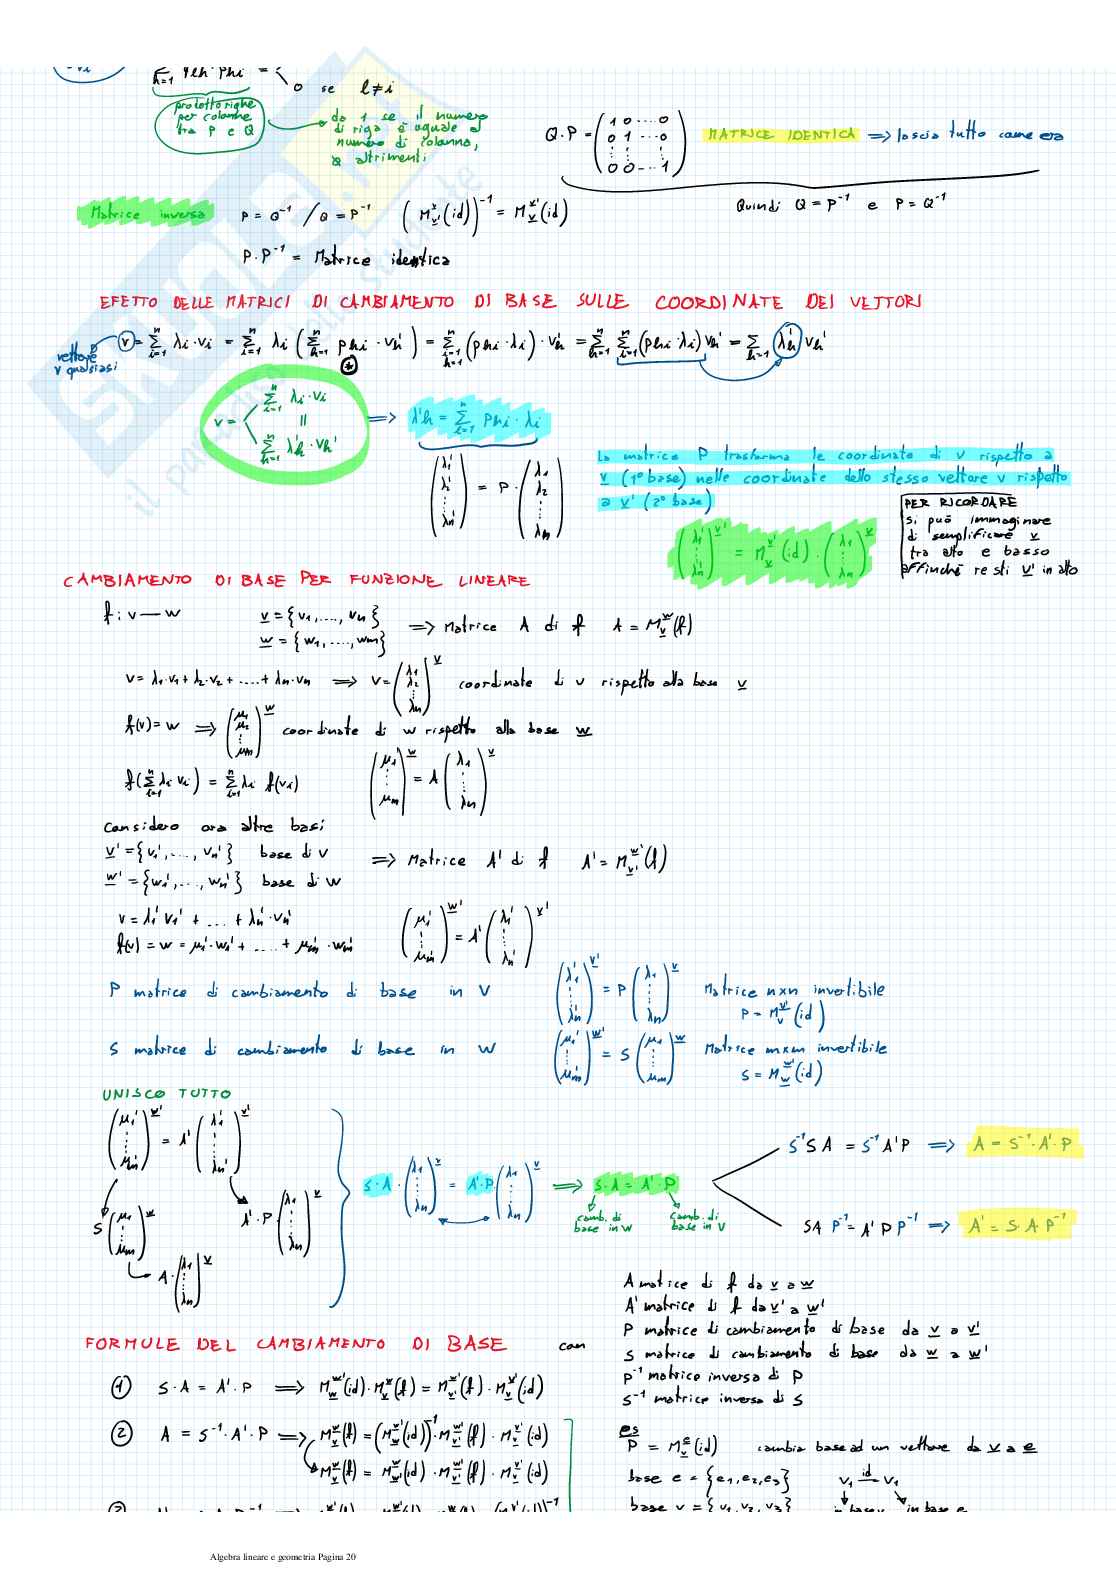 Σ qℓh · phi =
h=1
0 se ℓ≠i
prodotto righe
per colonne
tra P e Q
da 1 se il numero
di riga è uguale a
numero di colonna,
0 altrimenti
Q·P = (1 0 ---- 0
0 1 --- 0
0 0 -- - 1)
MATRICE IDENTICA ⟹ lascia tutto come era
Quindi Q = P⁻¹ e P = Q⁻¹
Matrice inversa P = Q⁻¹ / Q = P⁻¹ (M_v^v'(id))⁻¹ = M_v'^v(id)
P·P⁻¹ = Matrice identica
EFETTO DELLE MATRICI DI CAMBIAMENTO DI BASE SULLE COORDINATE DEI VETTORI
vettore
v qualsiasi
v = Σ λi·vi = Σ λi (Σ phi · vh') = Σ (phi·λi)·vh' = Σ Σ (phi·λi) vh' = Σ λh' vh'
v = Σ λi·vi
||
Σ λ'h·vh'
⟹ λ'h = Σ phi·λi
(λ1' λ2' ⋮ λn') = P·(λ1 λ2 ⋮ λn)
La matrice P trasforma le coordinate di v rispetto a
v (1ª base) nelle coordinate dello stesso vettore v rispetto
a v' (2ª base)
(λ1' ⋮ λn')^v' = M_v^v'(id)·(λ1 ⋮ λn)^v
PER RICORDARE
si può immaginare
di semplificare v
tra alto e basso
affinché resti v' in alto
CAMBIAMENTO DI BASE PER FUNZIONE LINEARE
f: v — w v = {v1,....,vn} ⟹ Matrice A di f A = M_v^w(f)
w = {w1,....,wm}
v = λ1·v1 + λ2·v2 + .... + λn·vn ⟹ v = (λ1 λ2 ⋮ λn)^v coordinate di v rispetto alla base v
f(v) = w ⟹ (μ1 μ2 ⋮ μm)^w coordinate di w rispetto alla base w
f(Σ λi vi) = Σ λi f(vi) (μ1 ⋮ μm)^w = A (λ1 ⋮ λn)^v
considero ora altre basi
v' = {v1',...,vn'} base di V ⟹ Matrice A' di f A' = M_v'^w'(f)
w' = {w1',...,wn'} base di W
v = λ1' v1' + ... + λn'·vn'
f(v) = w = μ1'·w1' + .... + μm'·wm'
(μ1' ⋮ μm')^w' = A' (λ1' ⋮ λn')^v'
P matrice di cambiamento di base in V (λ1' ⋮ λn')^v' = P (λ1 ⋮ λn)^v Matrice n×n invertibile
P = M_v^v'(id)
S matrice di cambiamento di base in W (μ1' ⋮ μm')^w' = S (μ1 ⋮ μm)^w Matrice m×m invertibile
S = M_w^w'(id)
UNISCO TUTTO
(μ1' ⋮ μm')^w' = A' (λ1' ⋮ λn')^v'
S (μ1 ⋮ μm)^w
A'·P (λ1 ⋮ λn)^v
A·(λ1 ⋮ λn)^v
S·A·(λ1 ⋮ λn)^v = A'·P (λ1 ⋮ λn)^v ⟹ S·A = A'·P
camb. di
base in W
camb. di
base in V
S⁻¹SA = S⁻¹A'P ⟹ A = S⁻¹·A'·P
SA P⁻¹ = A' P P⁻¹ ⟹ A' = S A P⁻¹
A matrice di f da v a w
A' matrice di f da v' a w'
P matrice di cambiamento di base da v a v'
S matrice di cambiamento di base da w a w'
P⁻¹ matrice inversa di P
S⁻¹ matrice inversa di S
FORMULE DEL CAMBIAMENTO DI BASE con
① S·A = A'·P ⟹ M_w^w'(id)·M_v^w(f) = M_v'^w'(f)·M_v^v'(id)
② A = S⁻¹·A'·P ⟹ M_v^w(f) = (M_w^w'(id))⁻¹·M_v'^w'(f)·M_v^v'(id)
M_v^w(f) = M_w'^w(id)·M_v'^w'(f)·M_v^v'(id)
es
P = M_v^e(id) cambia base ad un vettore da v a e
base e = {e1,e2,e3} v1 —id— v1
base v = {v1,v2,v3} in base v in base e
Algebra lineare e geometria Pagina 20